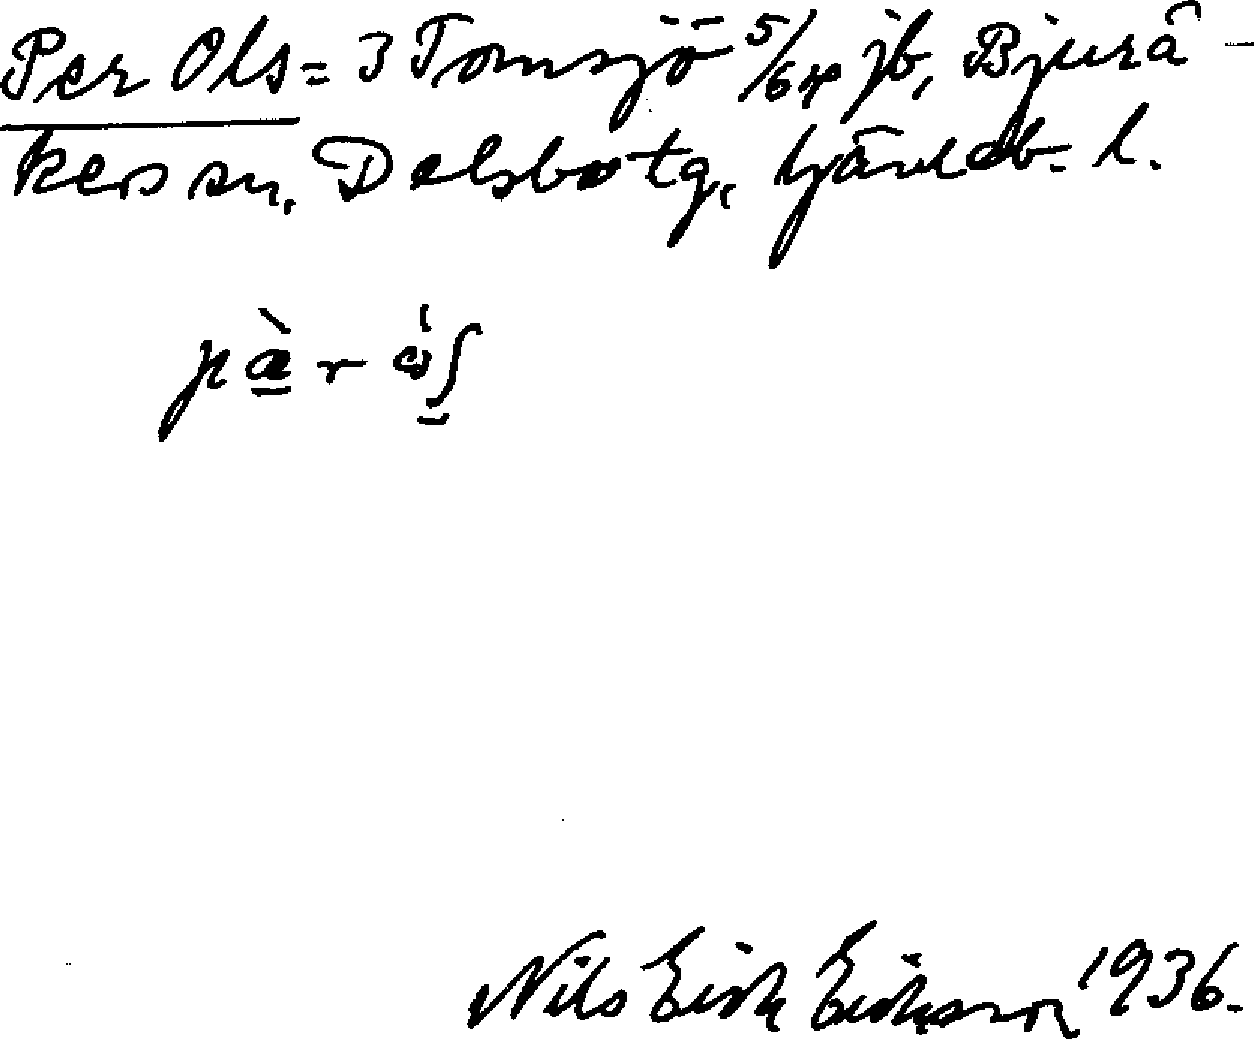 Per Ols = 3 Tomsjö 5/6 jb, Bjurå-
kers sn, Delsbo tg, Gävleb. l.
pæ̀r
Nils Erik Eriksson 1936.